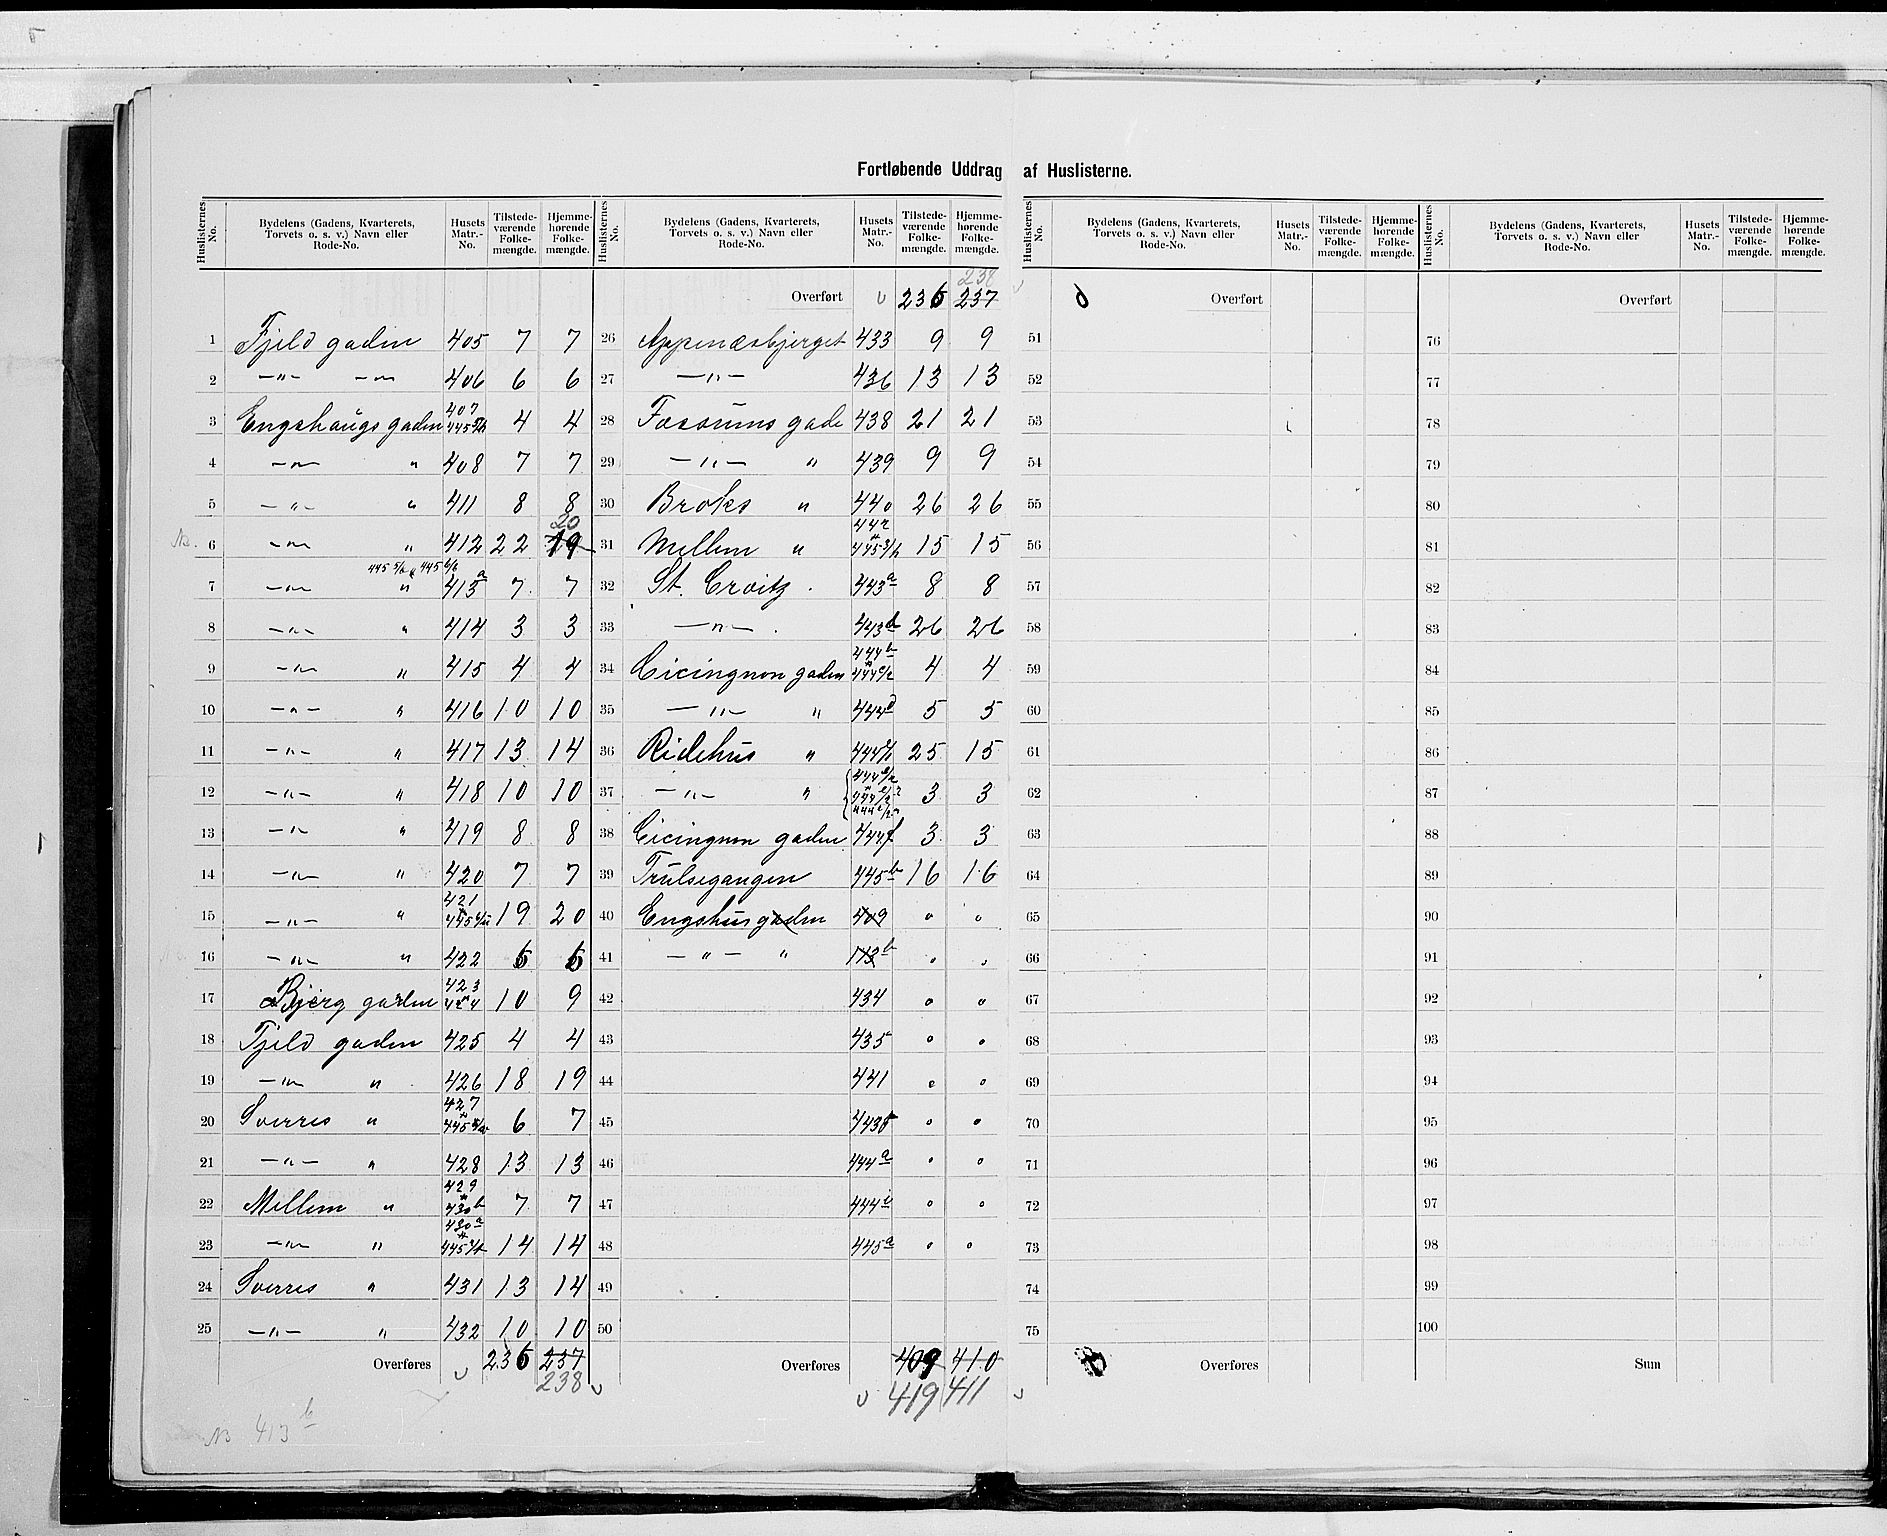 Fortløbende Uddrag af Huslisterne.
Huslisternes No. | Bydelens (Gadens, Kvarterets, Torvets o. s. v.) Navn eller Rode-No. | Husets Matr.-No. | Tilstede-værende Folke-mængde. | Hjemme-hørende Folke-mængde.
1 Fjeld gaden 405 7 7
2 —„— —„— 406 6 6
3 Engshaugs gaden 407 4 4
4 —„— „ 408 7 7
5 —„— „ 411 8 8
6 —„— „ 412 22 19 20
7 —„— „ 413a 7 7
8 —„— „ 414 3 3
9 —„— „ 415 4 4
10 —„— „ 416 10 10
11 —„— „ 417 13 14
12 —„— „ 418 10 10
13 —„— „ 419 8 8
14 —„— „ 420 7 7
15 —„— „ 421 19 20
16 —„— „ 422
17 Bjerg gaden 423 10 9
18 Fjeld gaden 425 4 4
19 —„— „ 426 18 19
20 Sverres „ 427 6 7
21 —„— „ 428 13 13
22 Mellem „ 429 430b 7 7
23 —„— „ 430a 14 14
24 Sverres „ 431 13 14
25 —„— „ 432 10 10
Overføres 236 237
238
NB 413b
Huslisternes No. | Bydelens (Gadens, Kvarterets, Torvets o. s. v.) Navn eller Rode-No. | Husets Matr.-No. | Tilstede-værende Folke-mængde. | Hjemme-hørende Folke-mængde.
238
Overført 236 237
26 Appenæsbjerget 433 9 9
27 —„— 436 13 13
28 Fossums gade 438 21 21
29 —„— „ 439 9 9
30 Broks „ 440 26 26
31 Mellem „ 442 15 15
32 St. Croix 443a 8 8
33 —„— 443d 26 26
34 Cicingnon gaden 444b 4 4
35 —„— „ 444d 5 5
36 Ridehus „ 25 15
37 —„— „ 3 3
38 Cicingnon gaden 444f 3 3
39 Trulsegangen 445b 16 16
40 Engshusgaden 409 0 0
41 —„— „ 0 0
42 434 0 0
43 435 0 0
44 441 0 0
45 0 0
46 444a 0 0
47 0 0
48 445a 0 0
49
50
Overføres 409 410
419 411
Huslisternes No. | Bydelens (Gadens, Kvarterets, Torvets o. s. v.) Navn eller Rode-No. | Husets Matr.-No. | Tilstede-værende Folke-mængde. | Hjemme-hørende Folke-mængde.
Overført
51
52
53
54
55
56
57
58
59
60
61
62
63
64
65
66
67
68
69
70
71
72
73
74
75
Overføres
Huslisternes No. | Bydelens (Gadens, Kvarterets, Torvets o. s. v.) Navn eller Rode-No. | Husets Matr.-No. | Tilstede-værende Folke-mængde. | Hjemme-hørende Folke-mængde.
Overført
76
77
78
79
80
81
82
83
84
85
86
87
88
89
90
91
92
93
94
95
96
97
98
99
100
Sum